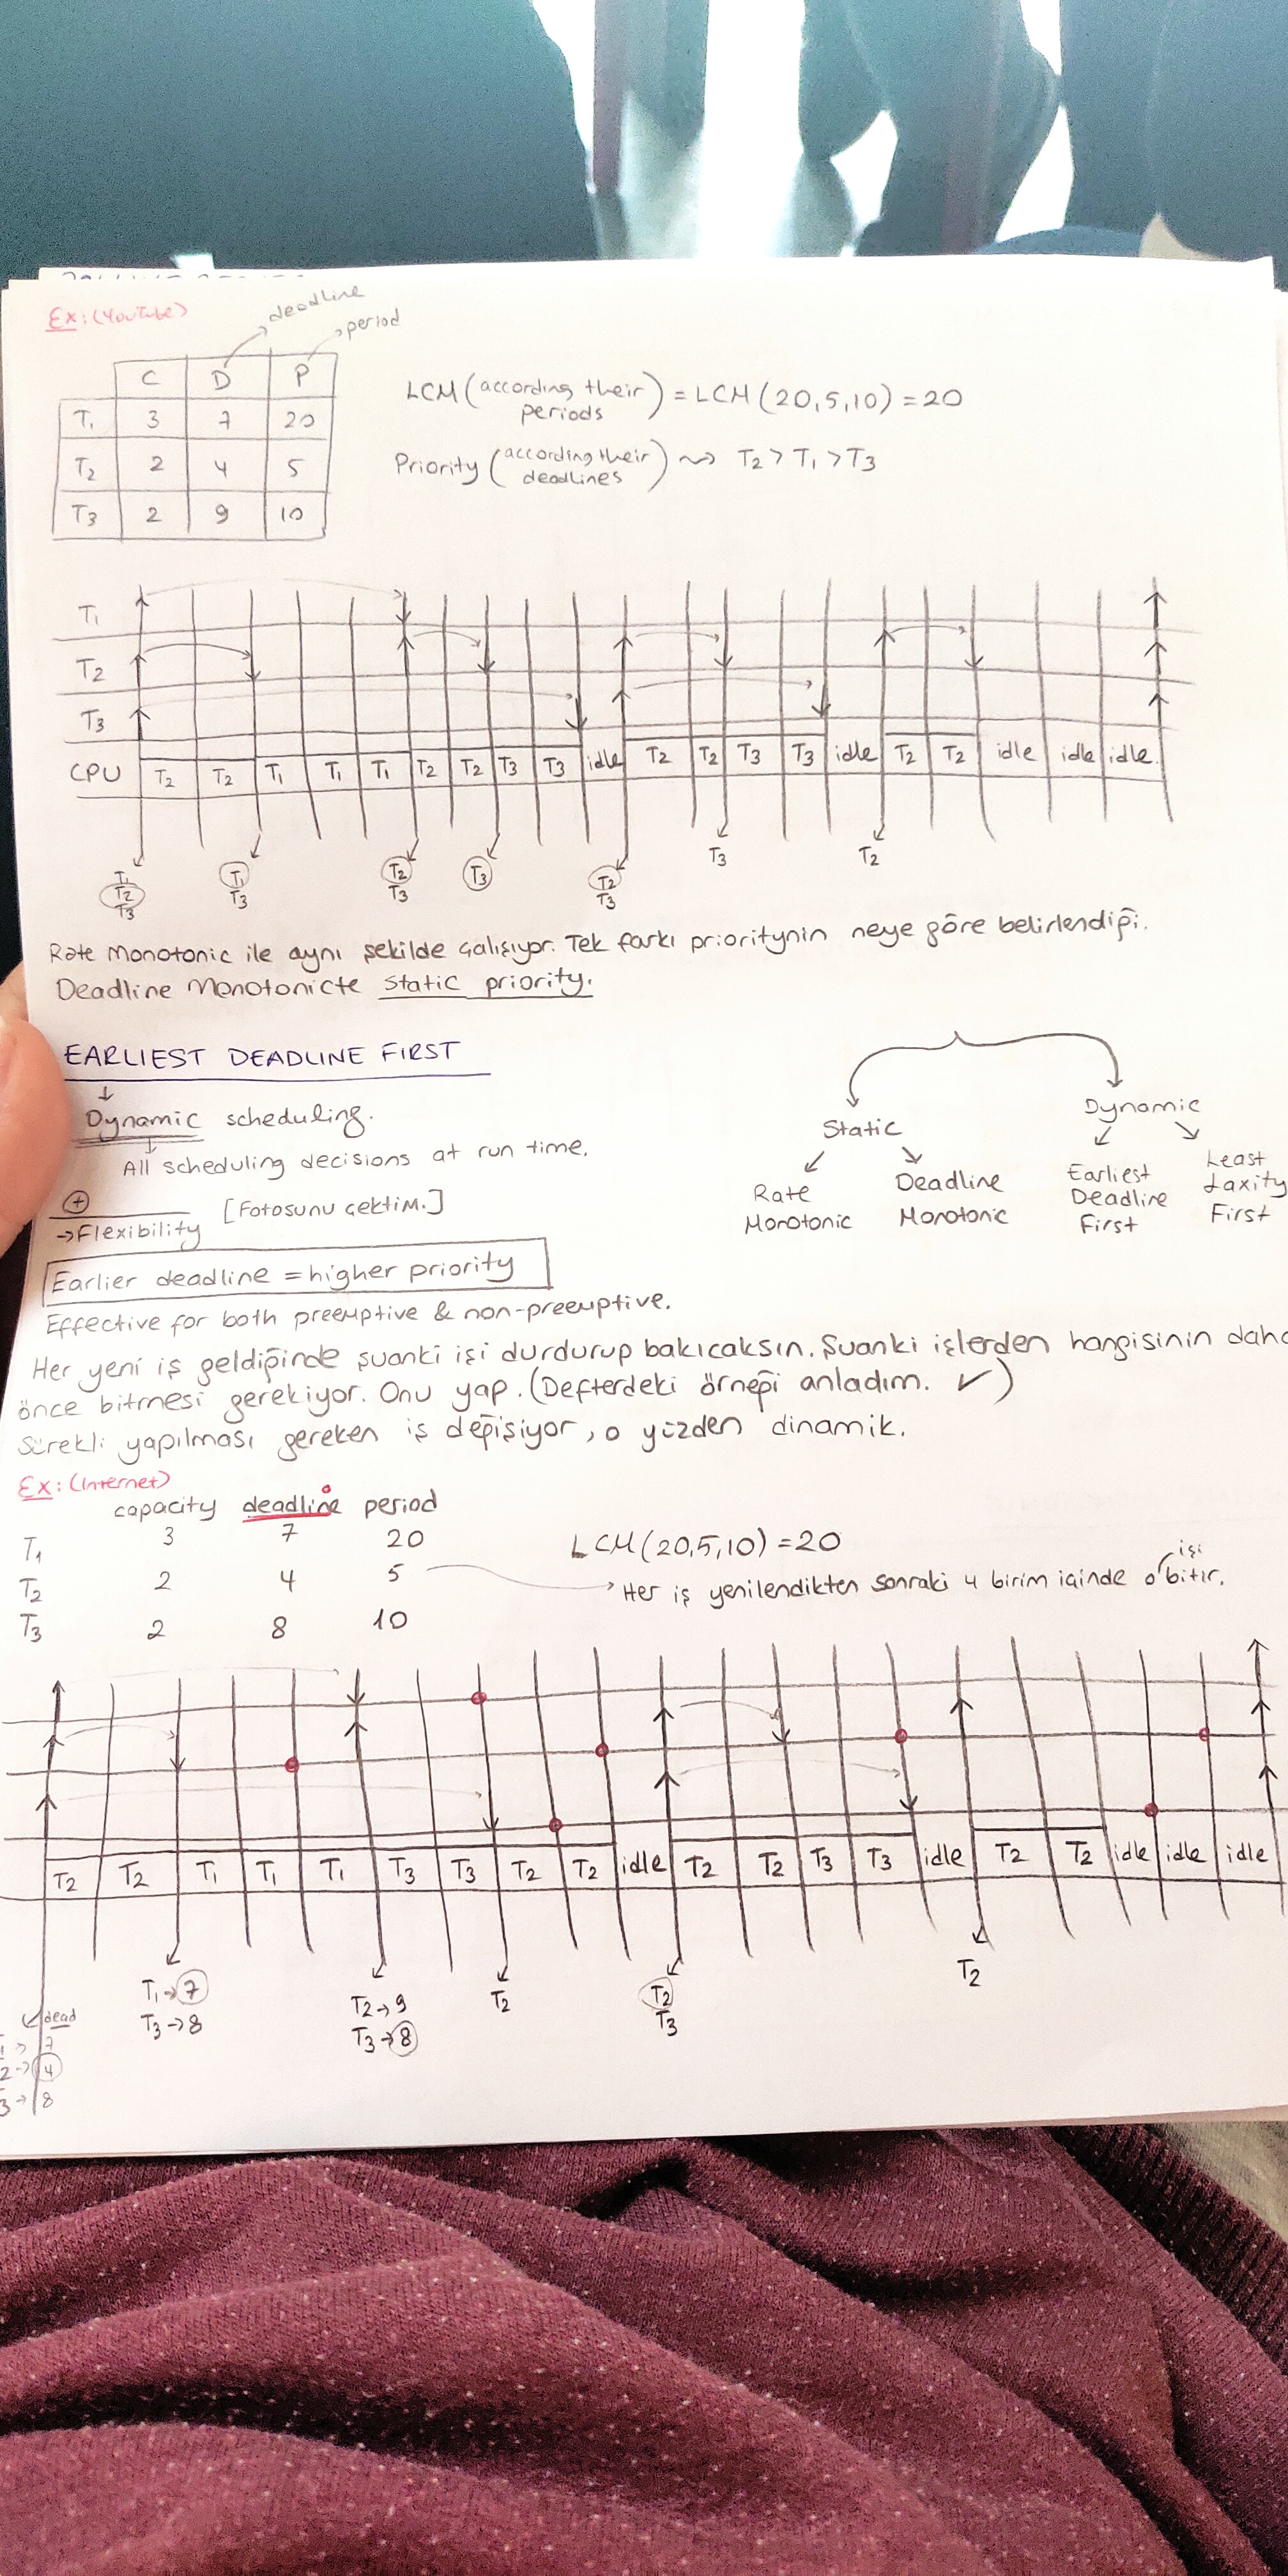 Ex: (YouTube)
deadline
period
C D P
T1 3 7 20
T2 2 4 5
T3 2 9 10
LCM (according their periods) = LCM (20,5,10) = 20
Priority (according their deadlines) ⇝ T2 > T1 > T3
T1
T2
T3
CPU T2 T2 T1 T1 T1 T2 T2 T3 T3 idle T2 T2 T3 T3 idle T2 T2 idle idle idle
T1 T1 T2 T3 T2 T3 T2
T2 T3 T3 T3
T3
Rate Monotonic ile aynı şekilde çalışıyor. Tek farkı prioritynin neye göre belirlendiği.
Deadline Monotonicte static priority.
EARLIEST DEADLINE FIRST
Dynamic scheduling.
All scheduling decisions at run time.
+ [Fotosunu çektim.]
→Flexibility
Static Dynamic
Rate Monotonic
Deadline Monotonic
Earliest Deadline First
Least Laxity First
Earlier deadline = higher priority
Effective for both preemptive & non-preemptive.
Her yeni iş geldiğinde şuanki işi durdurup bakıcaksın. Şuanki işlerden hangisinin daha
önce bitmesi gerekiyor. Onu yap. (Defterdeki örneği anladım. ✓)
Sürekli yapılması gereken iş değişiyor, o yüzden dinamik.
Ex: (Internet)
capacity deadline period
T1 3 7 20
T2 2 4 5
T3 2 8 10
LCM (20,5,10) = 20
işi
Her iş yenilendikten sonraki 4 birim içinde o bitir.
T2 T2 T1 T1 T1 T3 T3 T2 T2 idle T2 T2 T3 T3 idle T2 T2 idle idle idle
T1→7 T2→9 T2 T2 T2
T3→8 T3→8 T3
dead
→ 7
2→ 4
3→ 8